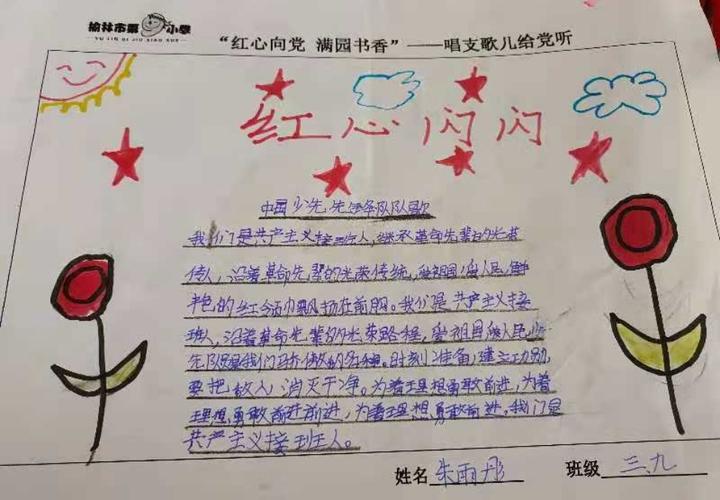 榆林市第 小学
YU LIN DI JIU XIAO XUE
“红心向党 满园书香”——唱支歌儿给党听
红心闪闪
中国少先 先 队队歌
我们是共产主义接班人，继承革命先辈的光荣
传人，沿着革命先辈的光荣传统，爱祖国爱人民，鲜
色的红领巾飘扬在前胸。我们是共产主义接
班人，沿着革命先辈的光荣路程，爱祖国爱人民，少
先队员是我们骄傲的名称。时刻准备，建立功勋，
要把敌人，消灭干净。为着理想勇敢前进，为着
理想，勇敢前进前进，为着理想勇敢前进，我们是
共产主义接班人。
姓名 朱雨彤 班级 三、九